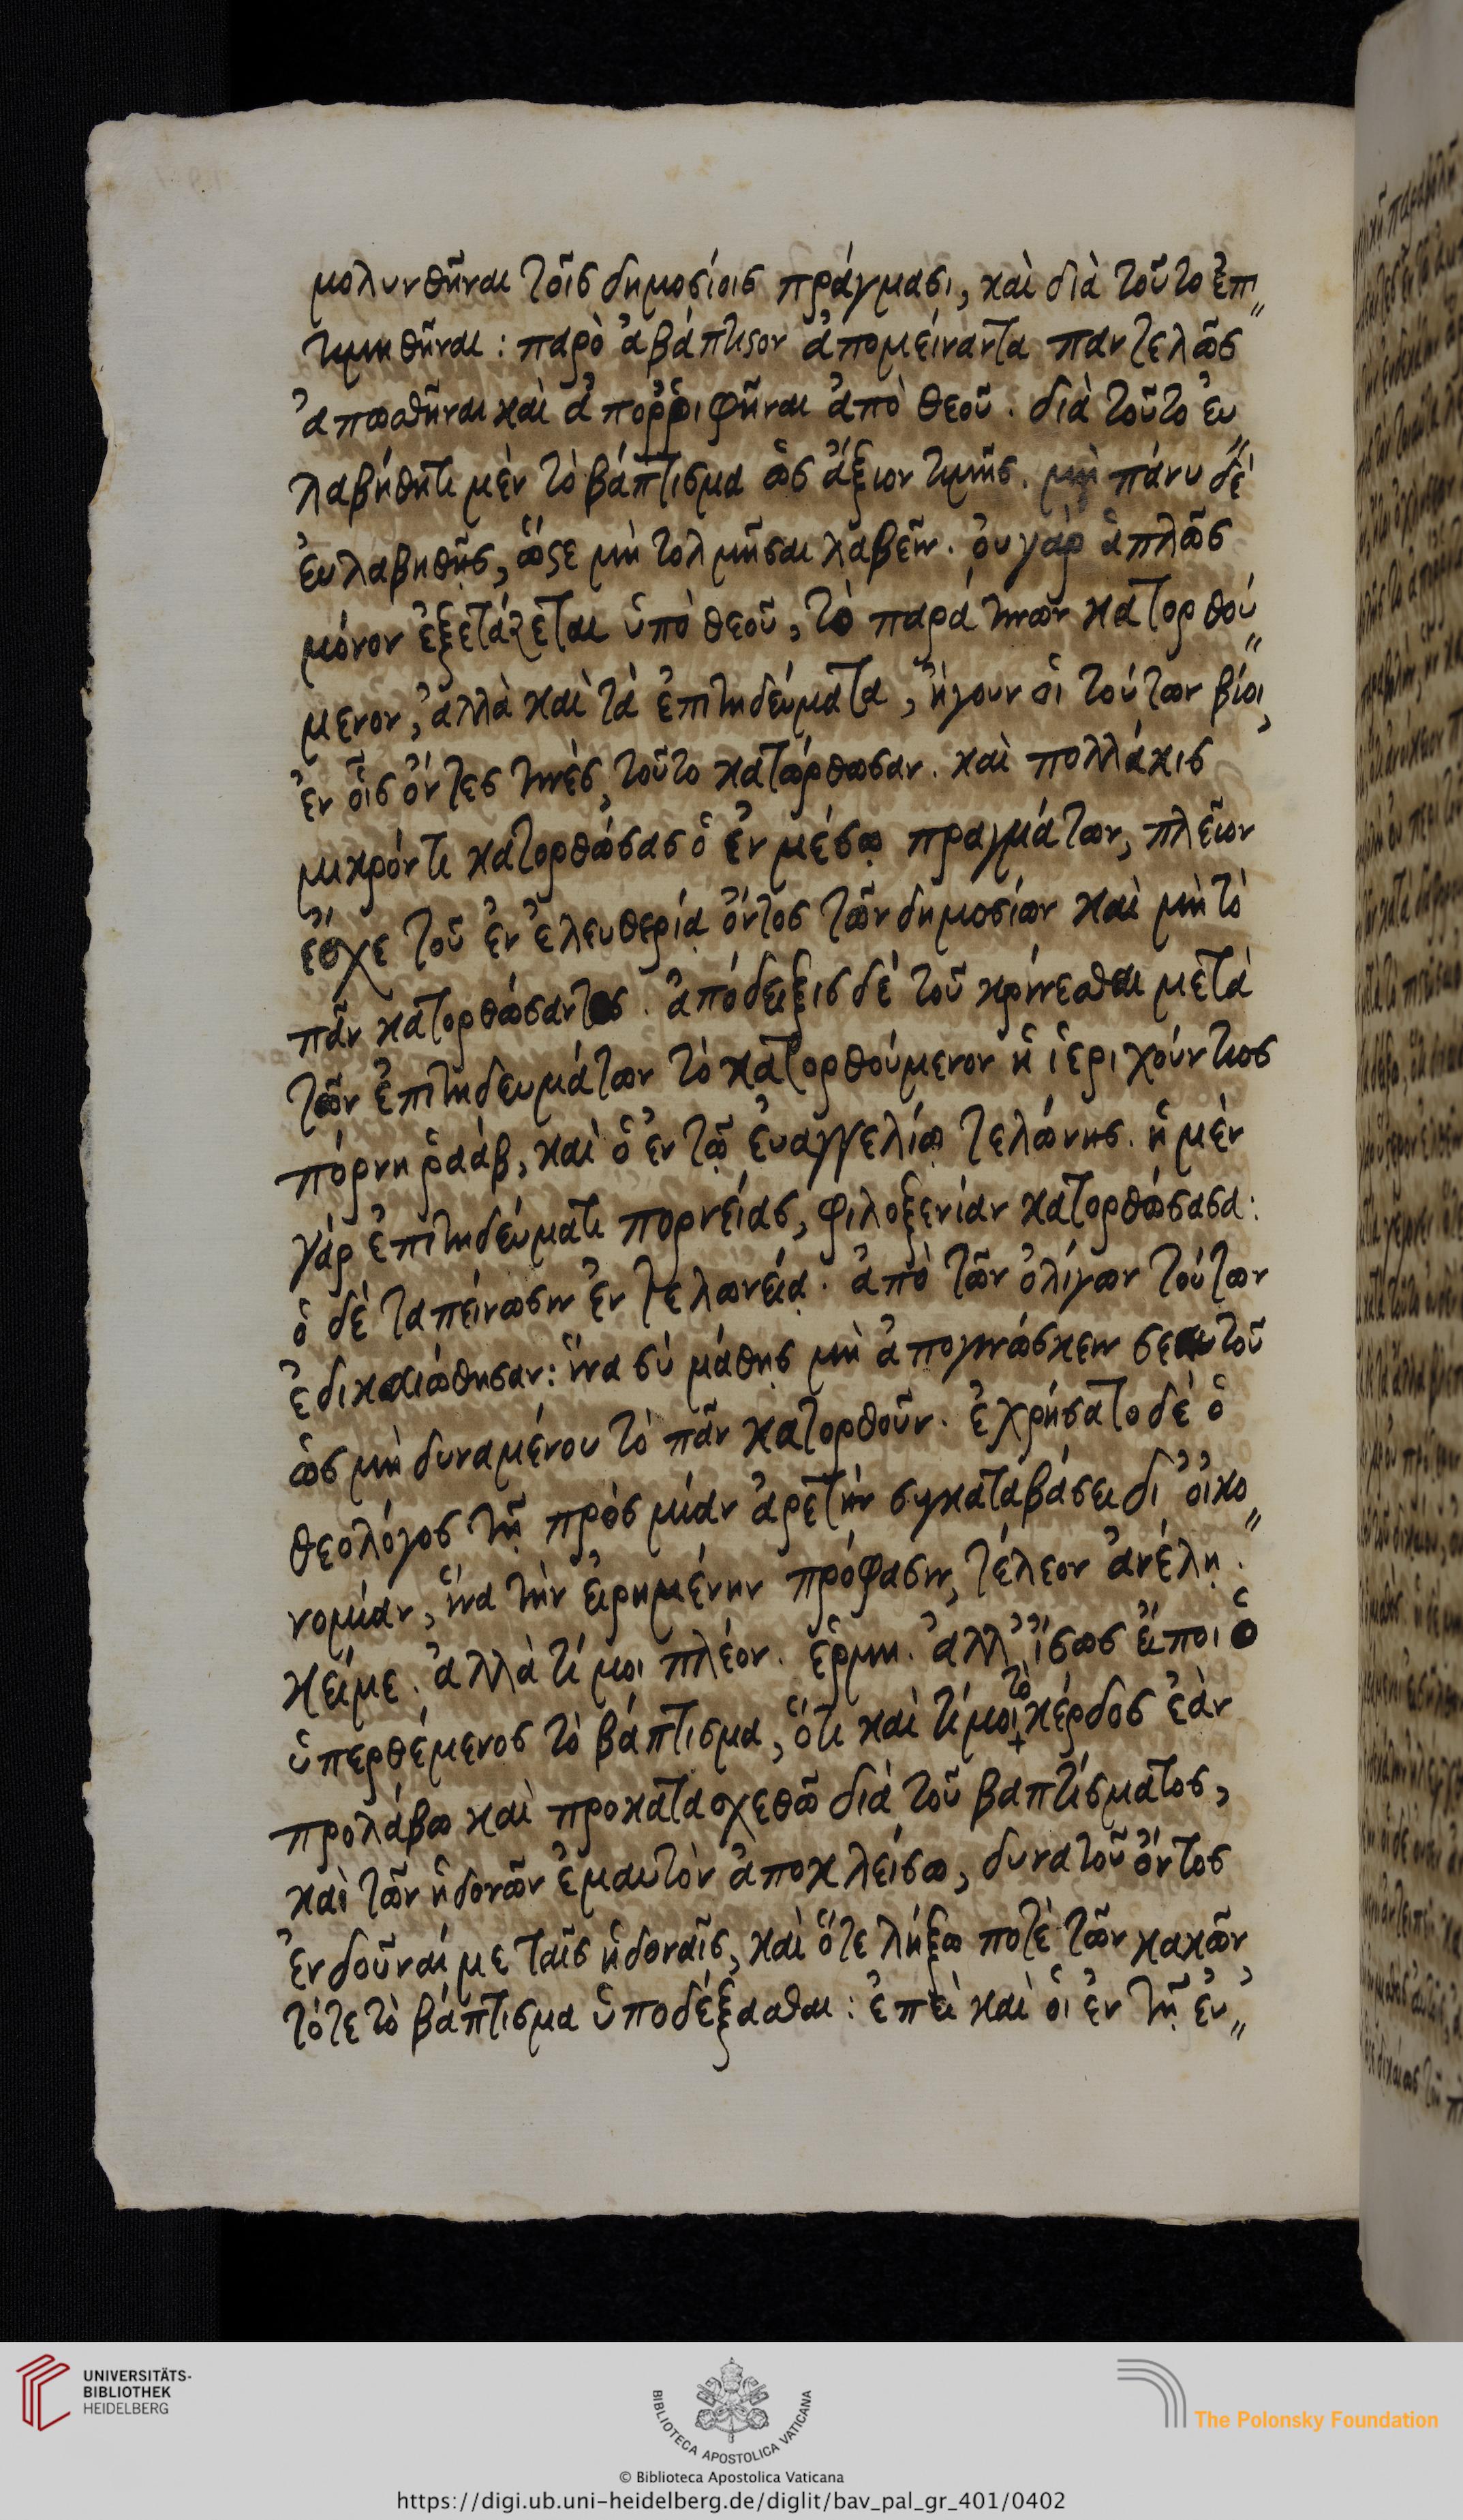 μολυνθῆναι τοῖς δημοσίοις πράγμασι, καὶ διὰ τοῦτο ἐπι〃
τιμηθῆναι: παρὸ ἀβάπτιστον ἀπομείναντα παντελῶς
ἀπωσθῆναι καὶ ἀπορριφῆναι ἀπὸ θεοῦ. διὰ τοῦτο εὐ〃
λαβήθητι μὲν τὸ βάπτισμα ὡς ἄξιον τιμῆς. μὴ πάνυ δὲ
εὐλαβηθῇς, ὥστε μὴ τολμῆσαι λαβεῖν. οὐ γὰρ ἁπλῶς
μόνον ἐξετάζεται ὑπὸ θεοῦ, τὸ παρά τινων κατορθού〃
μενον, ἀλλὰ καὶ τὰ ἐπιτηδεύματα, ἤγουν οἱ τούτων βίοι,
ἐν οἷς ὄντες τινὲς, τοῦτο κατώρθωσαν. καὶ πολλάκις
μικρόν τι κατορθώσας ὁ ἐν μέσῳ πραγμάτων, πλεῖον
ἔσχε τοῦ ἐν ἐλευθερίᾳ ὄντος τῶν δημοσίων καὶ μὴ τὸ
πᾶν κατορθώσαντος. ἀπόδειξις δὲ τοῦ κρίνεσθαι μετὰ
τῶν ἐπιτηδευμάτων τὸ κατορθούμενον ἡ ἱεριχούντιος
πόρνη ῥαάβ, καὶ ὁ ἐν τῷ εὐαγγελίῳ τελώνης. ἡ μὲν
γὰρ ἐπιτηδεύματι πορνείας, φιλοξενίαν κατορθώσασα:
ὁ δὲ ταπείνωσιν ἐν τελωνείᾳ. ἀπὸ τῶν ὀλίγων τούτων
ἐδικαιώθησαν: ἵνα σὺ μάθῃς μὴ ἀπογινώσκειν σεαυτοῦ
ὡς μὴ δυναμένου τὸ πᾶν κατορθοῦν. ἐχρήσατο δὲ ὁ
θεολόγος τῇ πρὸς μίαν ἀρετὴν συγκαταβάσει δι' οἰκο〃
νομίαν, ἵνα τὴν εἰρημένην πρόφασιν, τέλεον ἀνέλῃ.
κείμε. ἀλλὰ τί μοι πλέον. ἑρμη. ἀλλ' ἴσως εἴποι ὁ
ὑπερθέμενος τὸ βάπτισμα, ὅτι καὶ τί μοι τὸ κέρδος ἐὰν
προλάβω καὶ προκατασχεθῶ διὰ τοῦ βαπτίσματος,
καὶ τῶν ἡδονῶν ἐμαυτὸν ἀποκλείσω, δυνατοῦ ὄντος
ἐνδοῦναί με ταῖς ἡδοναῖς, καὶ ὅτε λήξω ποτὲ τῶν κακῶν,
τότε τὸ βάπτισμα ὑποδέξασθαι: ἐπεὶ καὶ οἱ ἐν τῇ ἐν〃
UNIVERSITÄTS-
BIBLIOTHEK
HEIDELBERG
BIBLIOTECA APOSTOLICA VATICANA
© Biblioteca Apostolica Vaticana
The Polonsky Foundation
https://digi.ub.uni-heidelberg.de/diglit/bav_pal_gr_401/0402